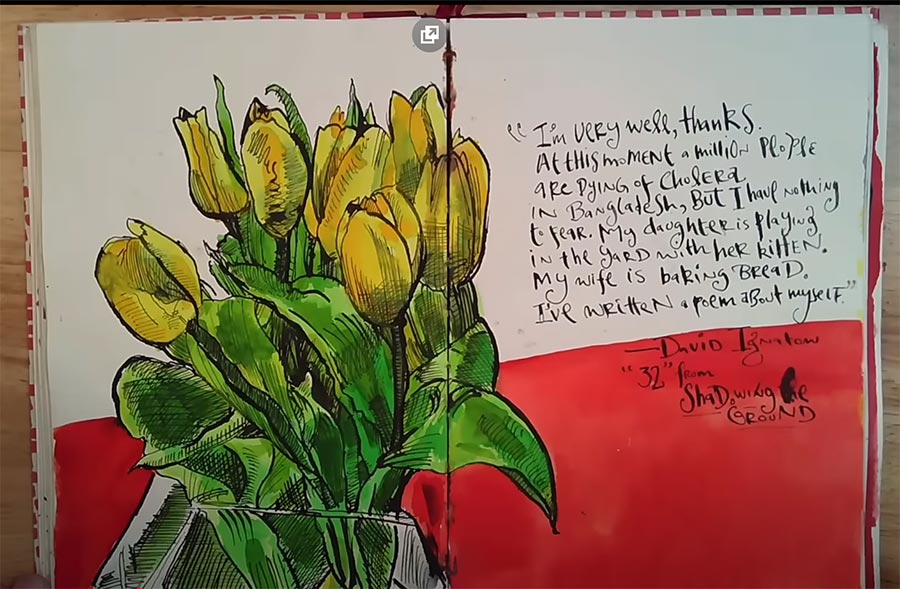 “I'm very well, thanks.
At this moment a million people
are dying of cholera
in Bangladesh, but I have nothing
to fear. My daughter is playing
in the yard with her kitten.
My wife is baking bread.
I've written a poem about myself.”
—David Ignatow
“32” from
Shadowing the
Ground